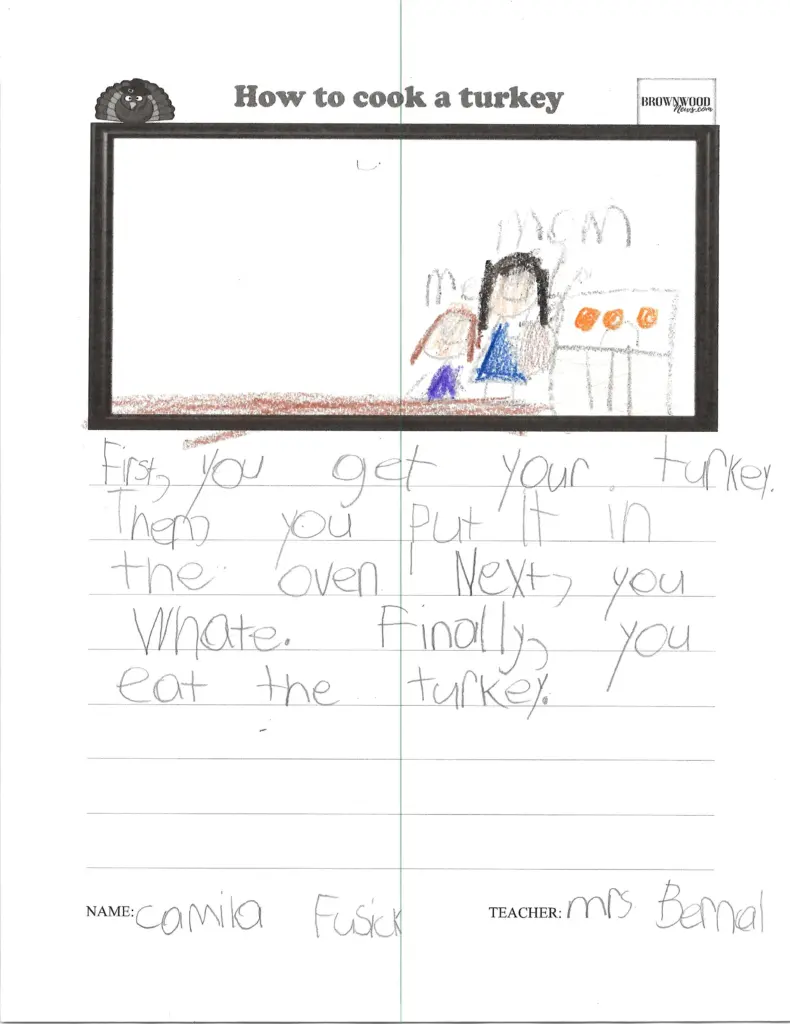 How to cook a turkey
BROWNWOOD
News.com
mom
First, you get your turkey.
Then, you put it in
the oven. Next, you
Whate. Finally, you
eat the turkey.
NAME: Camila Fusick
TEACHER: mrs Bernal